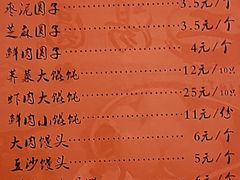 枣泥圆子 3.5元/个
芝麻圆子 3.5元/个
鲜肉圆子 4元/个
荠菜大馄饨 12元/10只
虾肉大馄饨 25元/10只
鲜肉小馄饨 11元/份
大肉馒头 6元/个
豆沙馒头 5元/个
6元/个